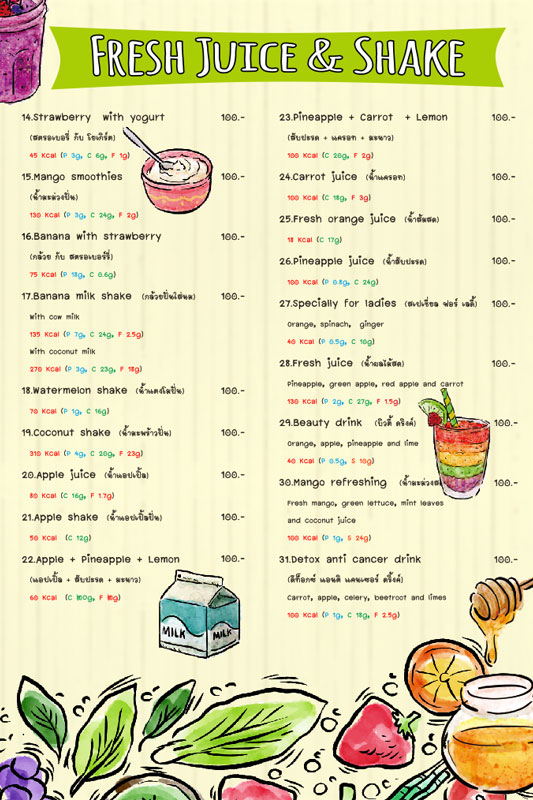 FRESH JUICE & SHAKE
14.Strawberry with yogurt 100.-
(สตรอเบอรี่ กับ โยเกิร์ต)
45 Kcal (P 3g, C 6g, F 1g)
15.Mango smoothies 100.-
(น้ำมะม่วงปั่น)
130 Kcal (P 3g, C 24g, F 2g)
16.Banana with strawberry 100.-
(กล้วย กับ สตรอเบอรี่)
75 Kcal (P 18g, C 0.6g)
17.Banana milk shake (กล้วยปั่นใส่นม) 100.-
With cow milk
135 Kcal (P 7g, C 24g, F 2.5g)
With coconut milk
270 Kcal (P 3g, C 23g, F 18g)
18.Watermelon shake (น้ำแตงโมปั่น) 100.-
70 Kcal (P 1g, C 16g)
19.Coconut shake (น้ำมะพร้าวปั่น) 100.-
310 Kcal (P 4g, C 20g, F 23g)
20.Apple juice (น้ำแอปเปิ้ล) 100.-
80 Kcal (C 16g, F 1.7g)
21.Apple shake (น้ำแอปเปิ้ลปั่น) 100.-
50 Kcal (C 12g)
22.Apple + Pineapple + Lemon 100.-
(แอปเปิ้ล + สับปะรด + มะนาว)
60 Kcal (C 100g, F 18g)
MILK MILK
23.Pineapple + Carrot + Lemon 100.-
(สับปะรด + แครอท + มะนาว)
100 Kcal (C 20g, F 2g)
24.Carrot juice (น้ำแครอท) 100.-
100 Kcal (C 18g, F 3g)
25.Fresh orange juice (น้ำส้มสด) 100.-
18 Kcal (C 17g)
26.Pineapple juice (น้ำสับปะรด) 100.-
100 Kcal (P 0.8g, C 24g)
27.Specially for ladies (สเปเชี่ยล ฟอร์ เลดี้) 100.-
Orange, spinach, ginger
40 Kcal (P 0.5g, C 10g)
28.Fresh juice (น้ำผลไม้สด) 100.-
Pineapple, green apple, red apple and carrot
130 Kcal (P 2g, C 27g, F 1.5g)
29.Beauty drink (บิวตี้ ดริ้งค์) 100.-
Orange, apple, pineapple and lime
40 Kcal (P 0.5g, S 10g)
30.Mango refreshing 100.-
Fresh mango, green lettuce, mint leaves
and coconut juice
100 Kcal (P 1g, S 24g)
31.Detox anti cancer drink 100.-
(ดีท็อกซ์ แอนติ แคนเซอร์ ดริ้งค์)
Carrot, apple, celery, beetroot and limes
100 Kcal (P 1g, C 18g, F 2.5g)